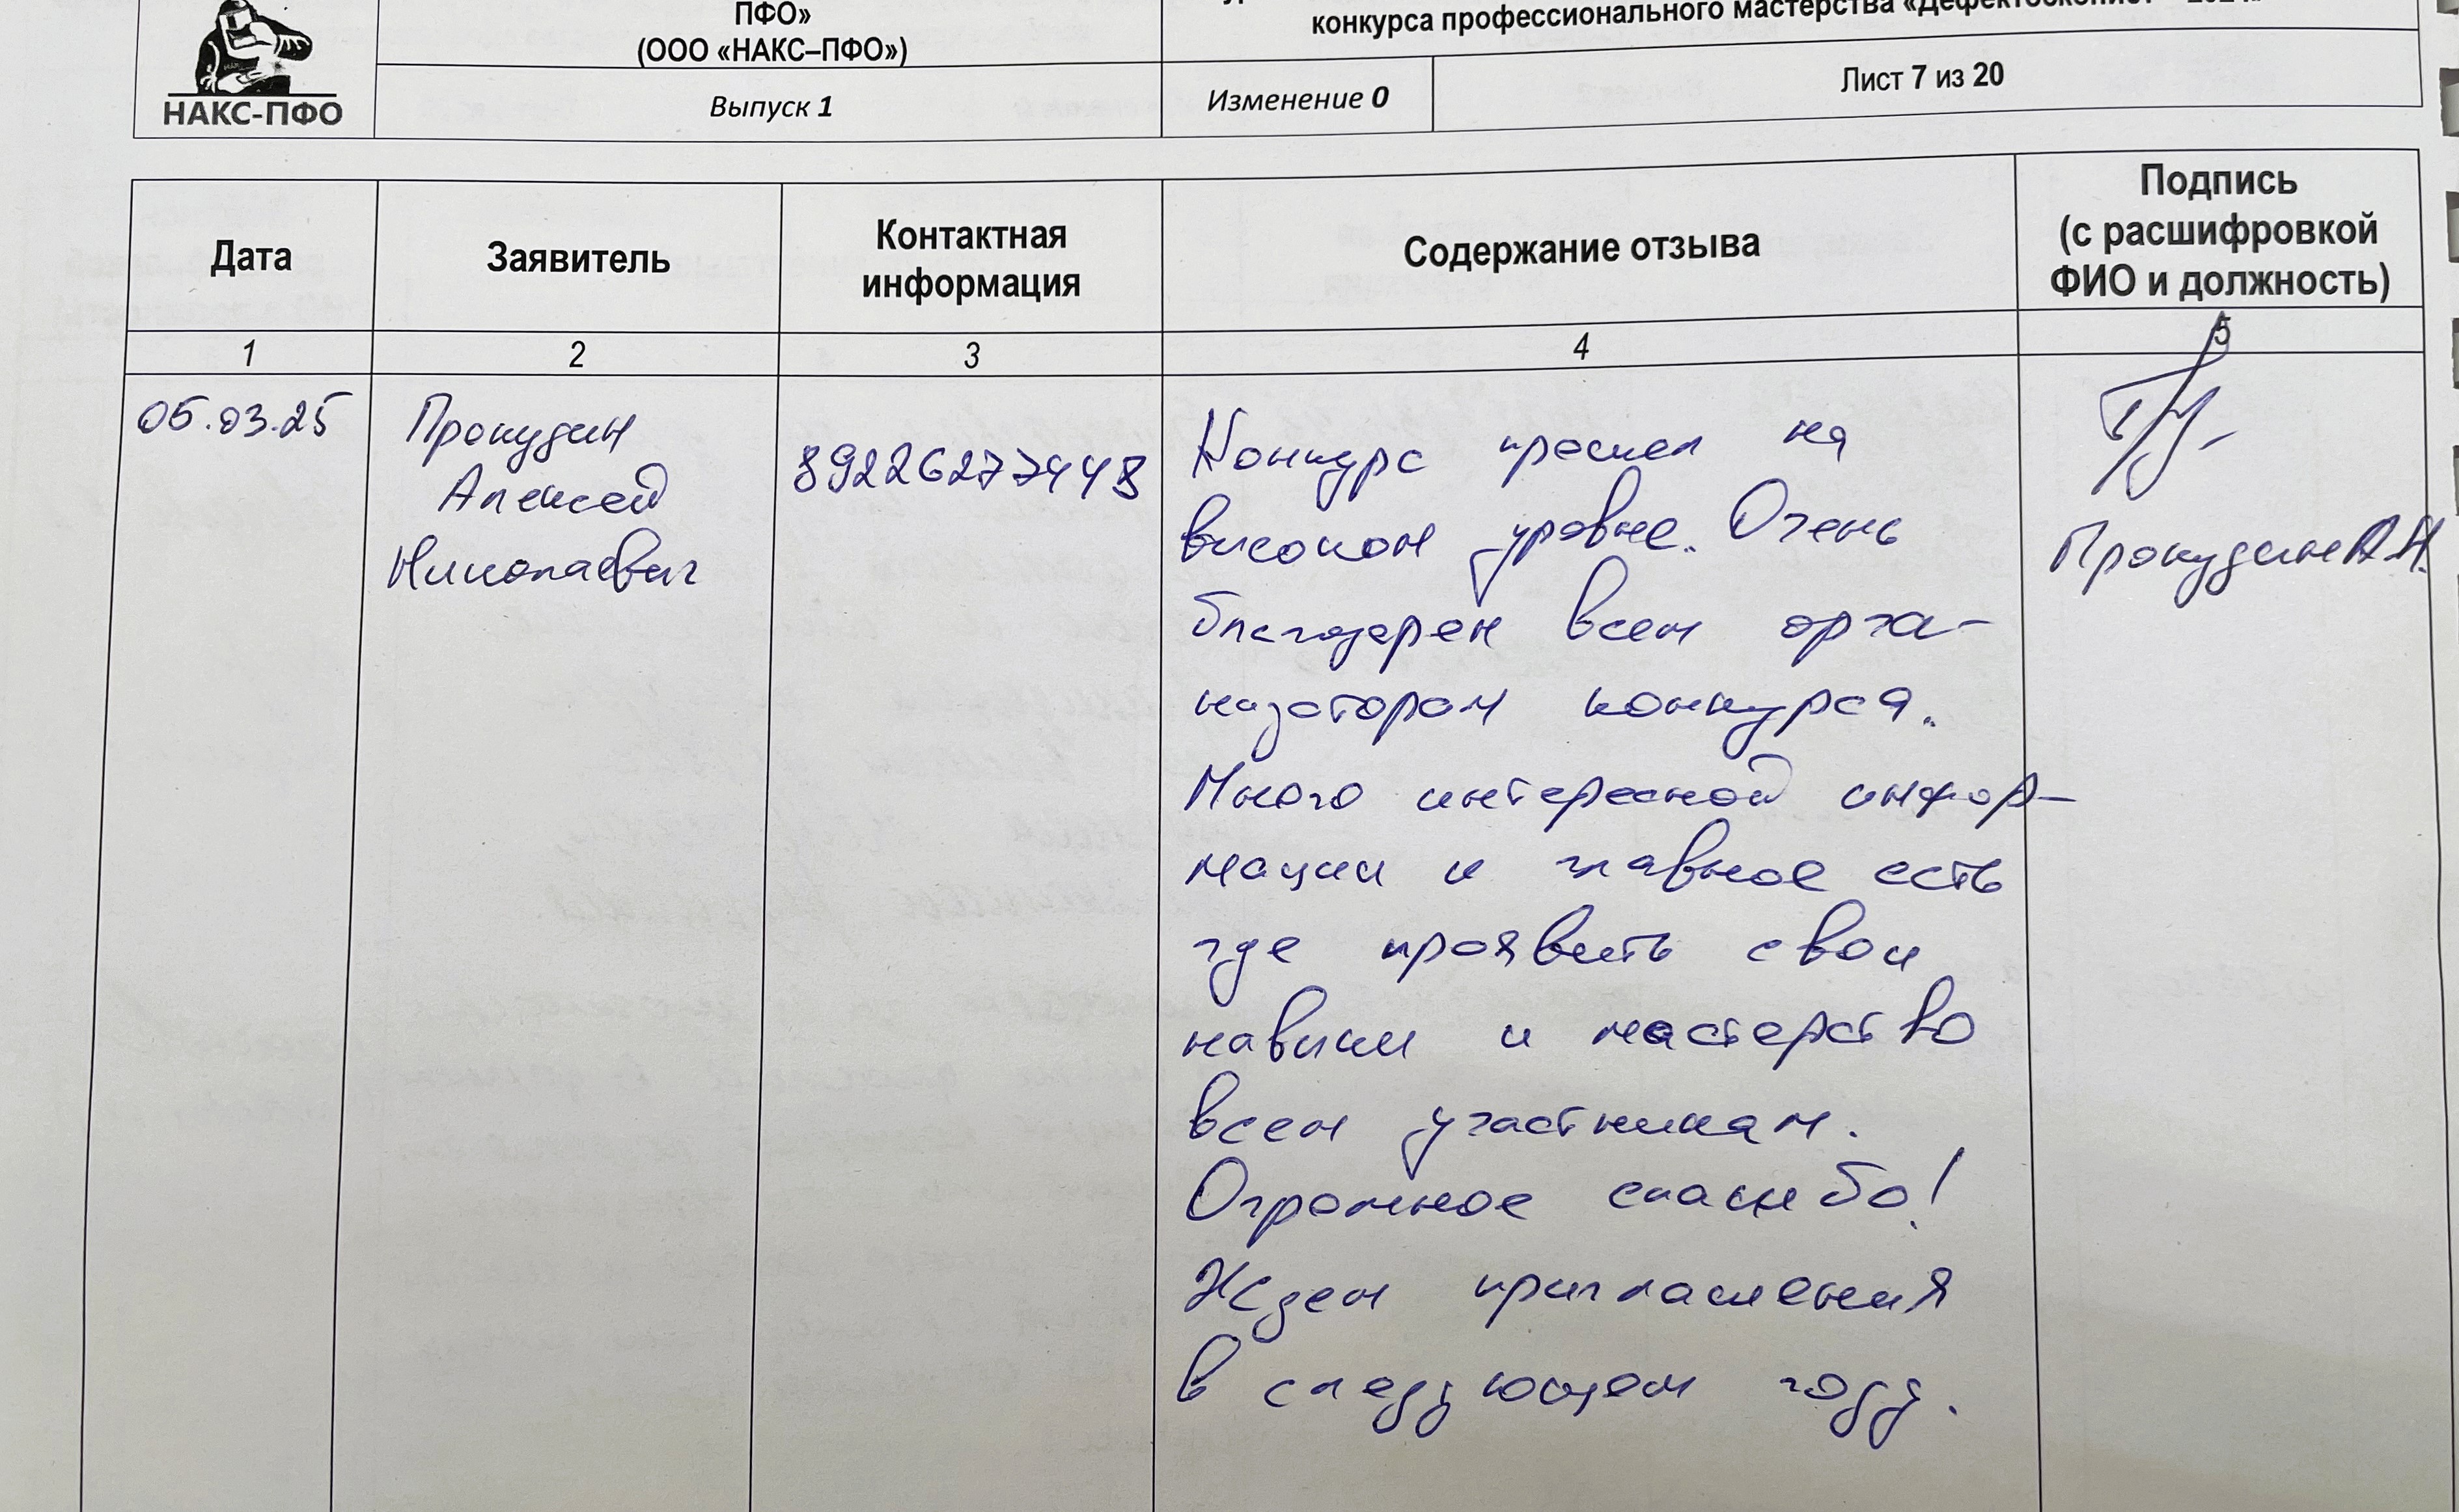 ПФО»
конкурса профессионального мастерства
(ООО «НАКС–ПФО»)
НАКС-ПФО
Выпуск 1
Изменение 0
Лист 7 из 20
Дата
Заявитель
Контактная
информация
Содержание отзыва
Подпись
(с расшифровкой
ФИО и должность)
1
2
3
4
5
05.03.25
Прокудин
Алексей
Николаевич
89226277448
Конкурс прошел на
высоком уровне. Очень
благодарен всем орга-
низаторам конкурса.
Много интересной инфор-
мации и главное есть
где проявить свои
навыки и мастерство
всем участникам.
Огромное спасибо!
Ждем приглашения
в следующем году.
Прокудин А.Н.